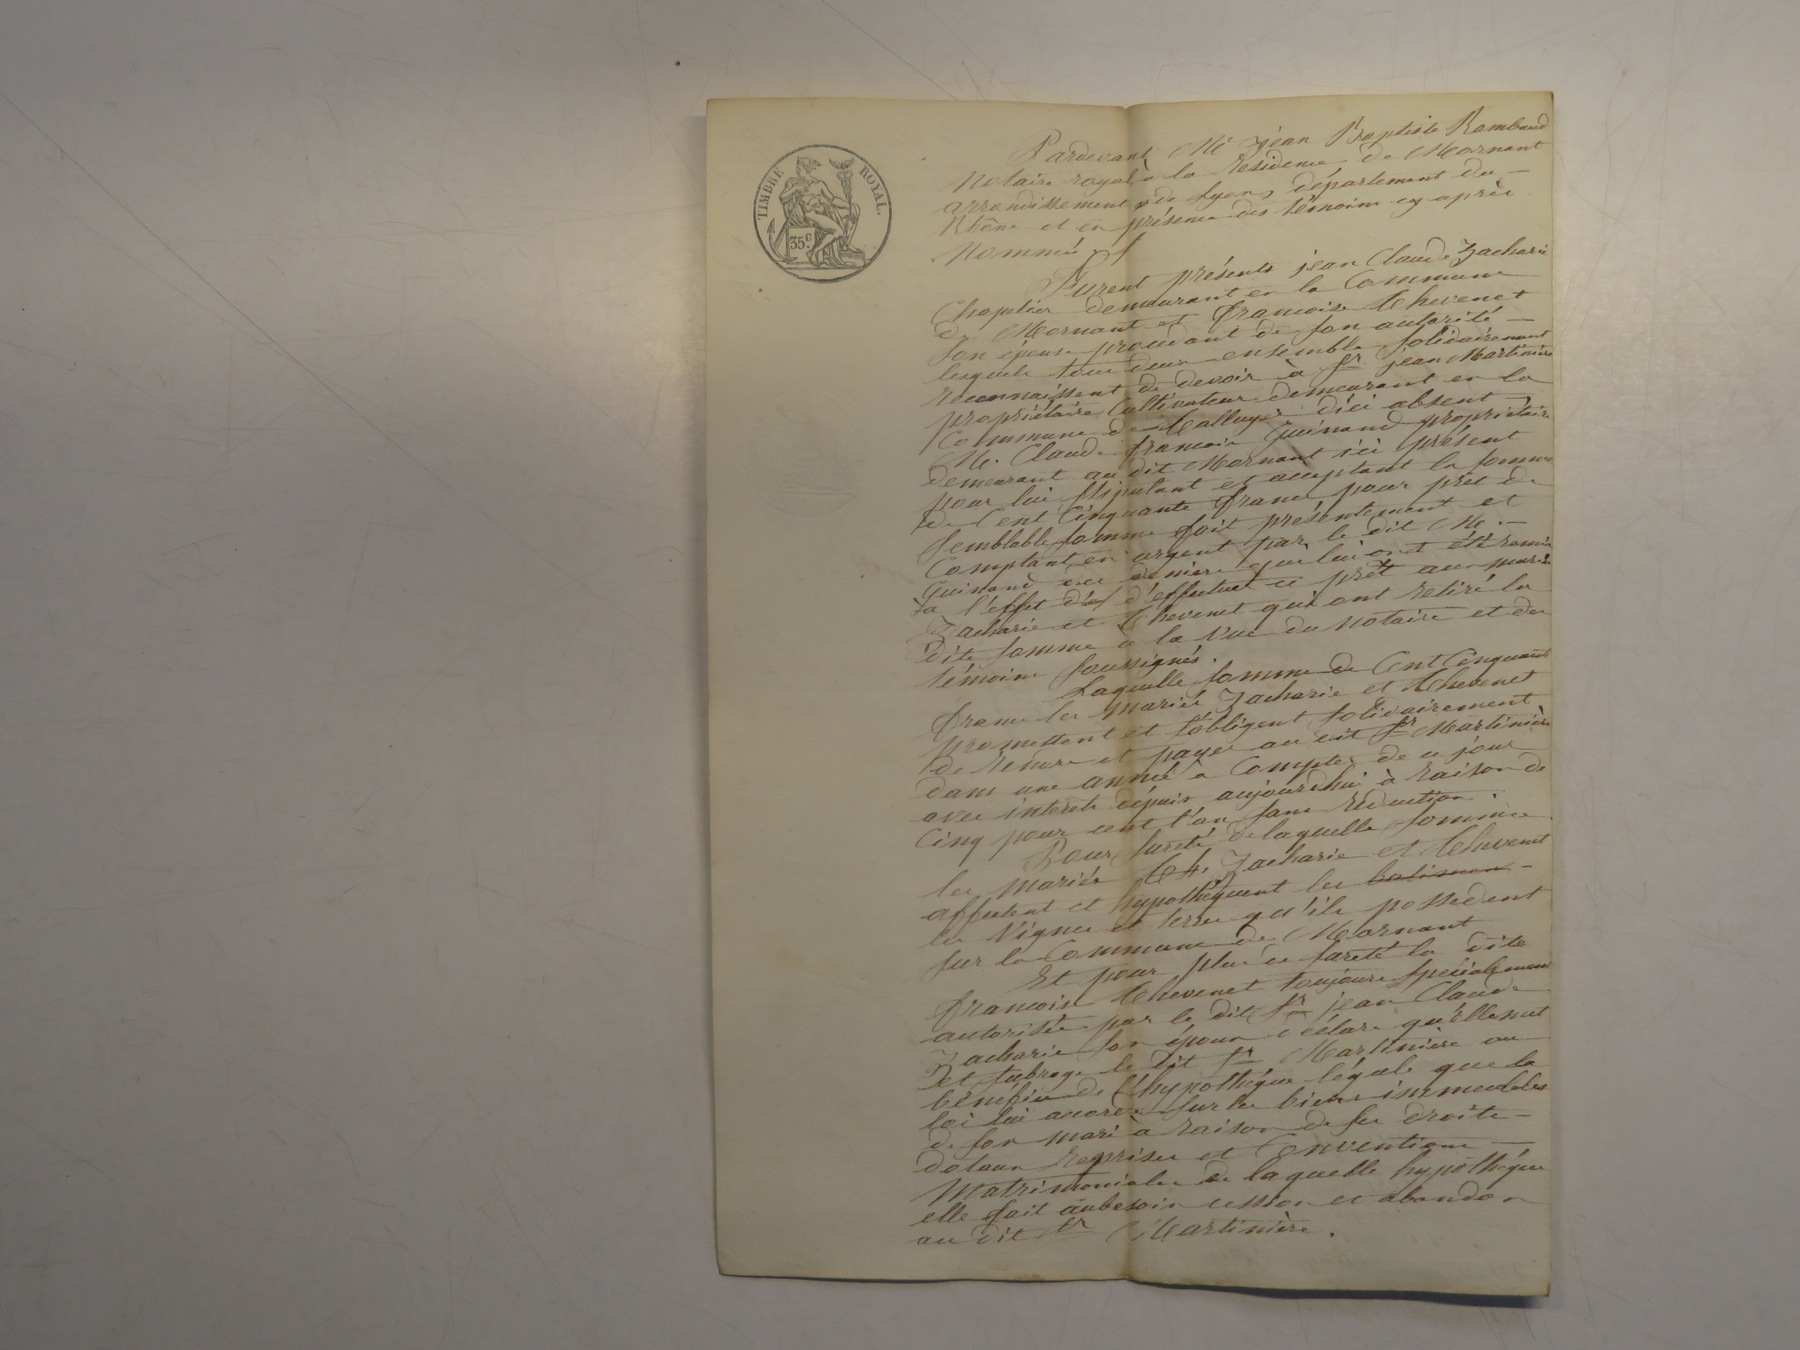 TIMBRE ROYAL.
35 c.
Pardevant Me jean Baptiste Rambaud
Notaire royal à la résidence de Mornant
arrondissement de Lyon, département du
Rhône et en présence des témoins cy après
Nommés
Furent présents jean Claude Zacharie
Chapelier demeurant en la Commune
de Mornant et françoise Thevenet
son épouse procédant de son autorité
lesquels tous deux ensemble solidairement
reconnaissent de devoir à sr jean Martinière
propriétaire Cultivateur demeurant en la
Commune de d'ici absent
M. Claude françois Guinand propriétaire
demeurant au dit Mornant ici présent
pour lui stipulant et acceptant la somme
de Cent Cinquante francs pour prêt de
semblable somme fait présentement et
Comptant en argent par le dit M.
Guinand des deniers qui lui ont été remis
à l'effet d'effectuer ce prêt aux mariés
Zacharie et Thevenet qui ont retiré la
dite somme à la vue du notaire et des
témoins soussignés.
Laquelle somme de Cent Cinquante
francs les mariés Zacharie et Thevenet
promettent et s'obligent solidairement
de rendre et payer au dit sr Martinière
dans une année à Compter de ce jour
avec intérêts dépuis aujourdhui à raison de
Cinq pour cent l'an sans réduction.
Pour sureté de laquelle somme
les mariés Zacharie et Thevenet
affectent et hypothèquent les batimens
les vignes et terres qu'ils possedent
sur la Commune de Mornant
Et pour plus de sureté la dite
françoise Thevenet toujours spécialement
autorisée par le dit sr jean Claude
Zacharie son époux déclare qu'elle met
et subroge le dit sr Martinière au
bénéfice de l'hypothéque légale que la
loi lui accorde sur les biens immeubles
de son mari à raison de ses droits
dotaux reprises et Conventions
Matrimoniales de laquelle hypothéque
elle fait aubesoin cession et abandon
au dit sr Martinière.